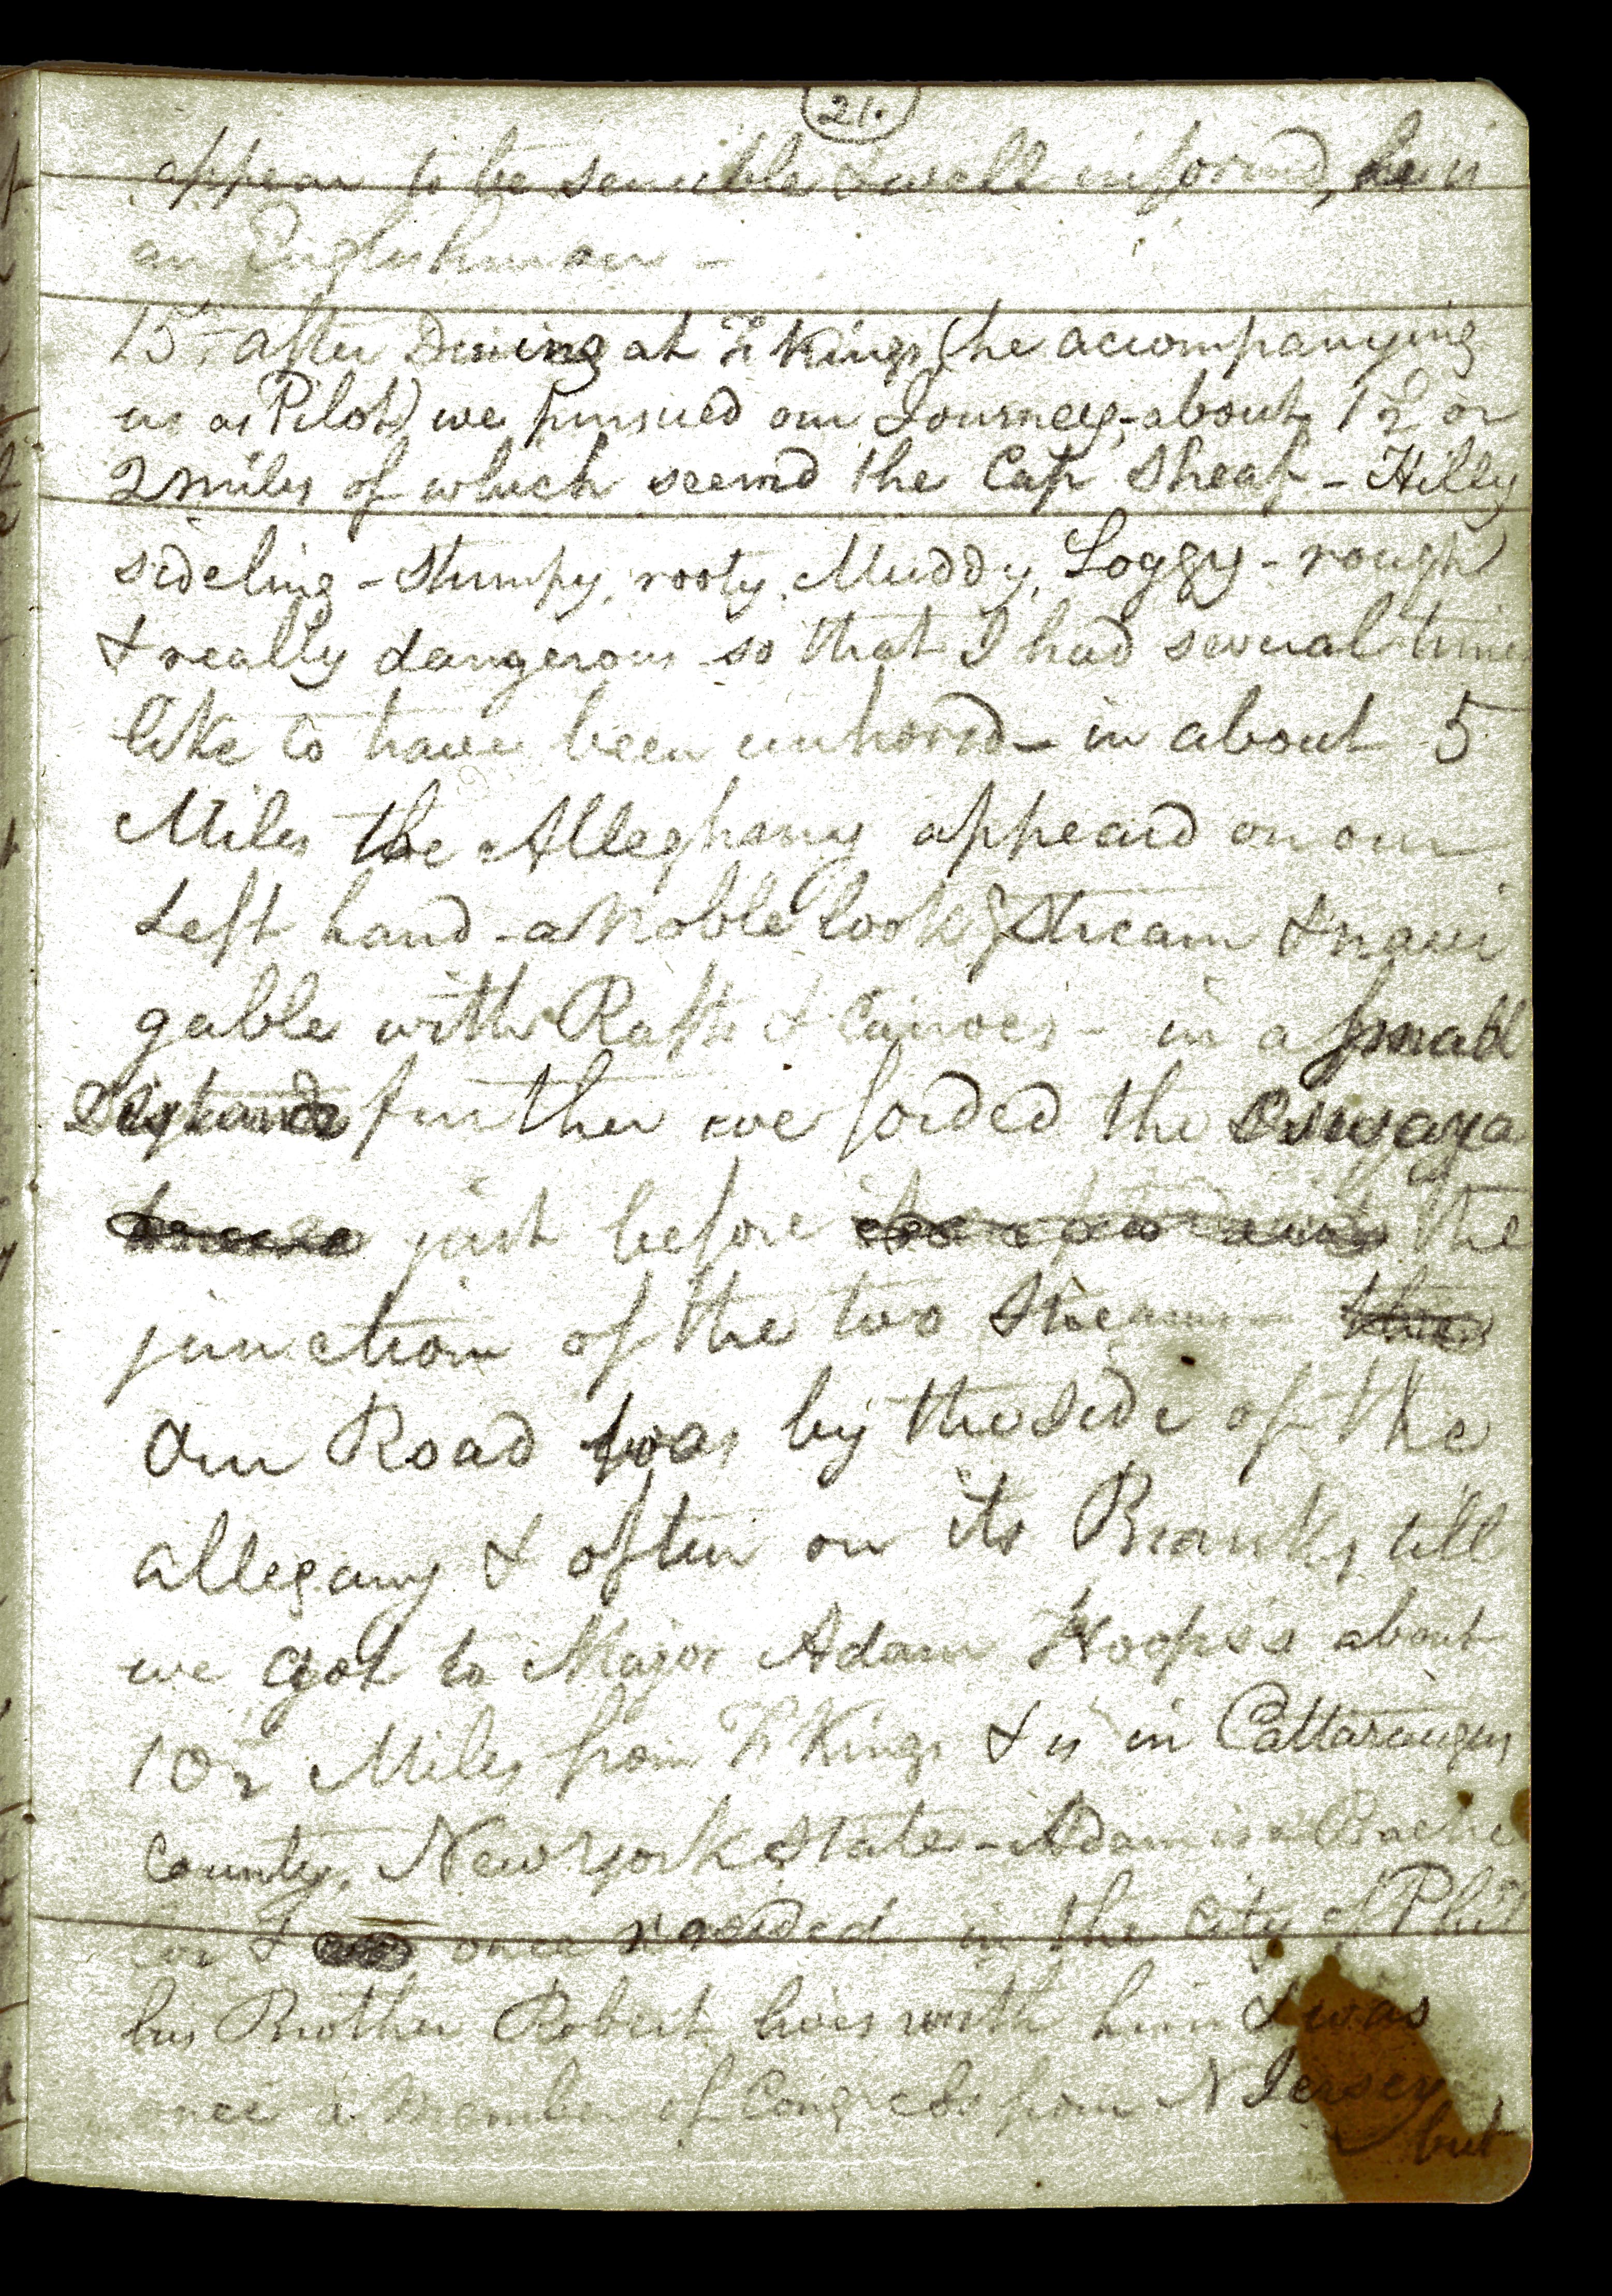 21.
appear to be sensible & well inform'd, he is
an Englishman -
15th after Dining at F Kings (he accompanying
us as Pilot) we pursued our Journey, - about 1½ or
2 miles of which seemd the Cap Sheaf - Hilly
sideling - Stumpy, rooty, Muddy, Loggy - rough
& really dangerous so that I had several times
like to have been unhorsd - in about 5
Miles the Alleghany appeard on our
Left hand - a Noble lookg Stream & navi
gable with Rafts & Canoes - in a small
Distance further we forded the Oswaya
just before the
junction of the two Streams -
Our Road was by the side of the
allegany & often on its Banks till
we got to Major Adam Hoops's about
10½ Miles from F Kings & is in Cattaraugus
County, New York State - Adam is a Bache
lor & once resided in the City of Phila
his Brother Robert lives with him & was
once a Member of Congress from N Jersey
but